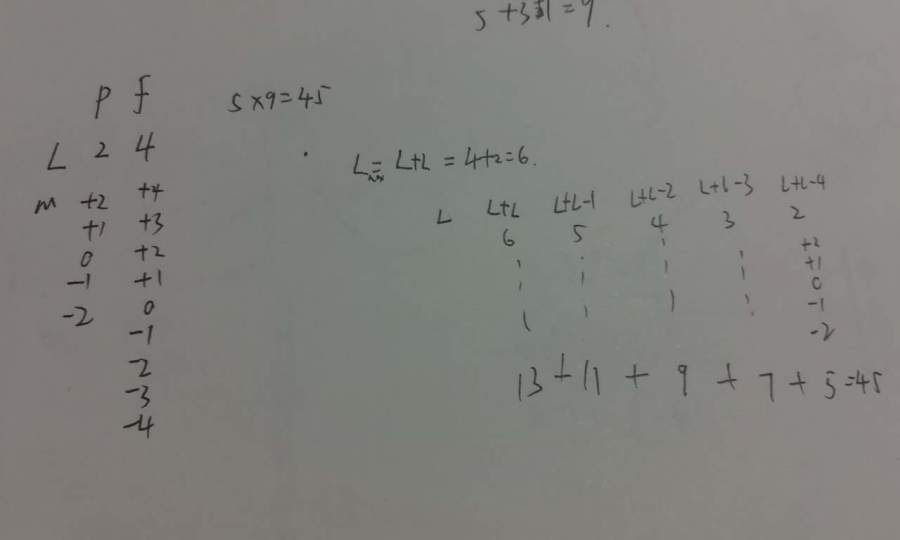 5 × 9 = 45
p f
L 2 4
m +2 +4
+1 +3
0 +2
-1 +1
-2 0
-1
-2
-3
-4
= L+L = 4+2=6.
L L+L L+L-1 L+L-2 L+L-3 L+L-4
6 5 4 3 2
+2
+1
0
-1
-2
13 + 11 + 9 + 7 + 5 = 45